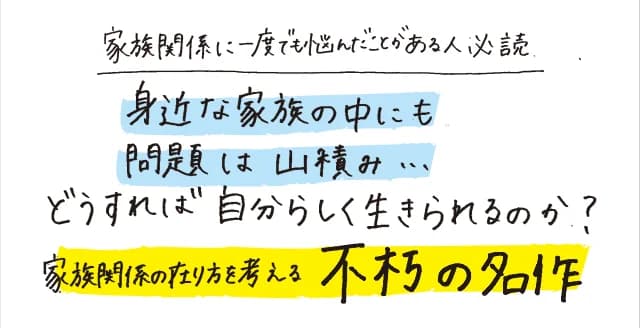 家族関係に一度でも悩んだことがある人必読.
身近な家族の中にも
問題は山積み…
どうすれば自分らしく生きられるのか?
家族関係の在り方を考える 不朽の名作